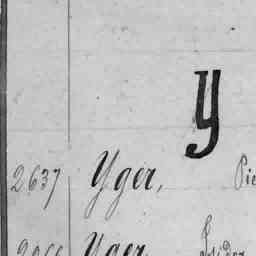 y
2637 Yger, Pie
Yger